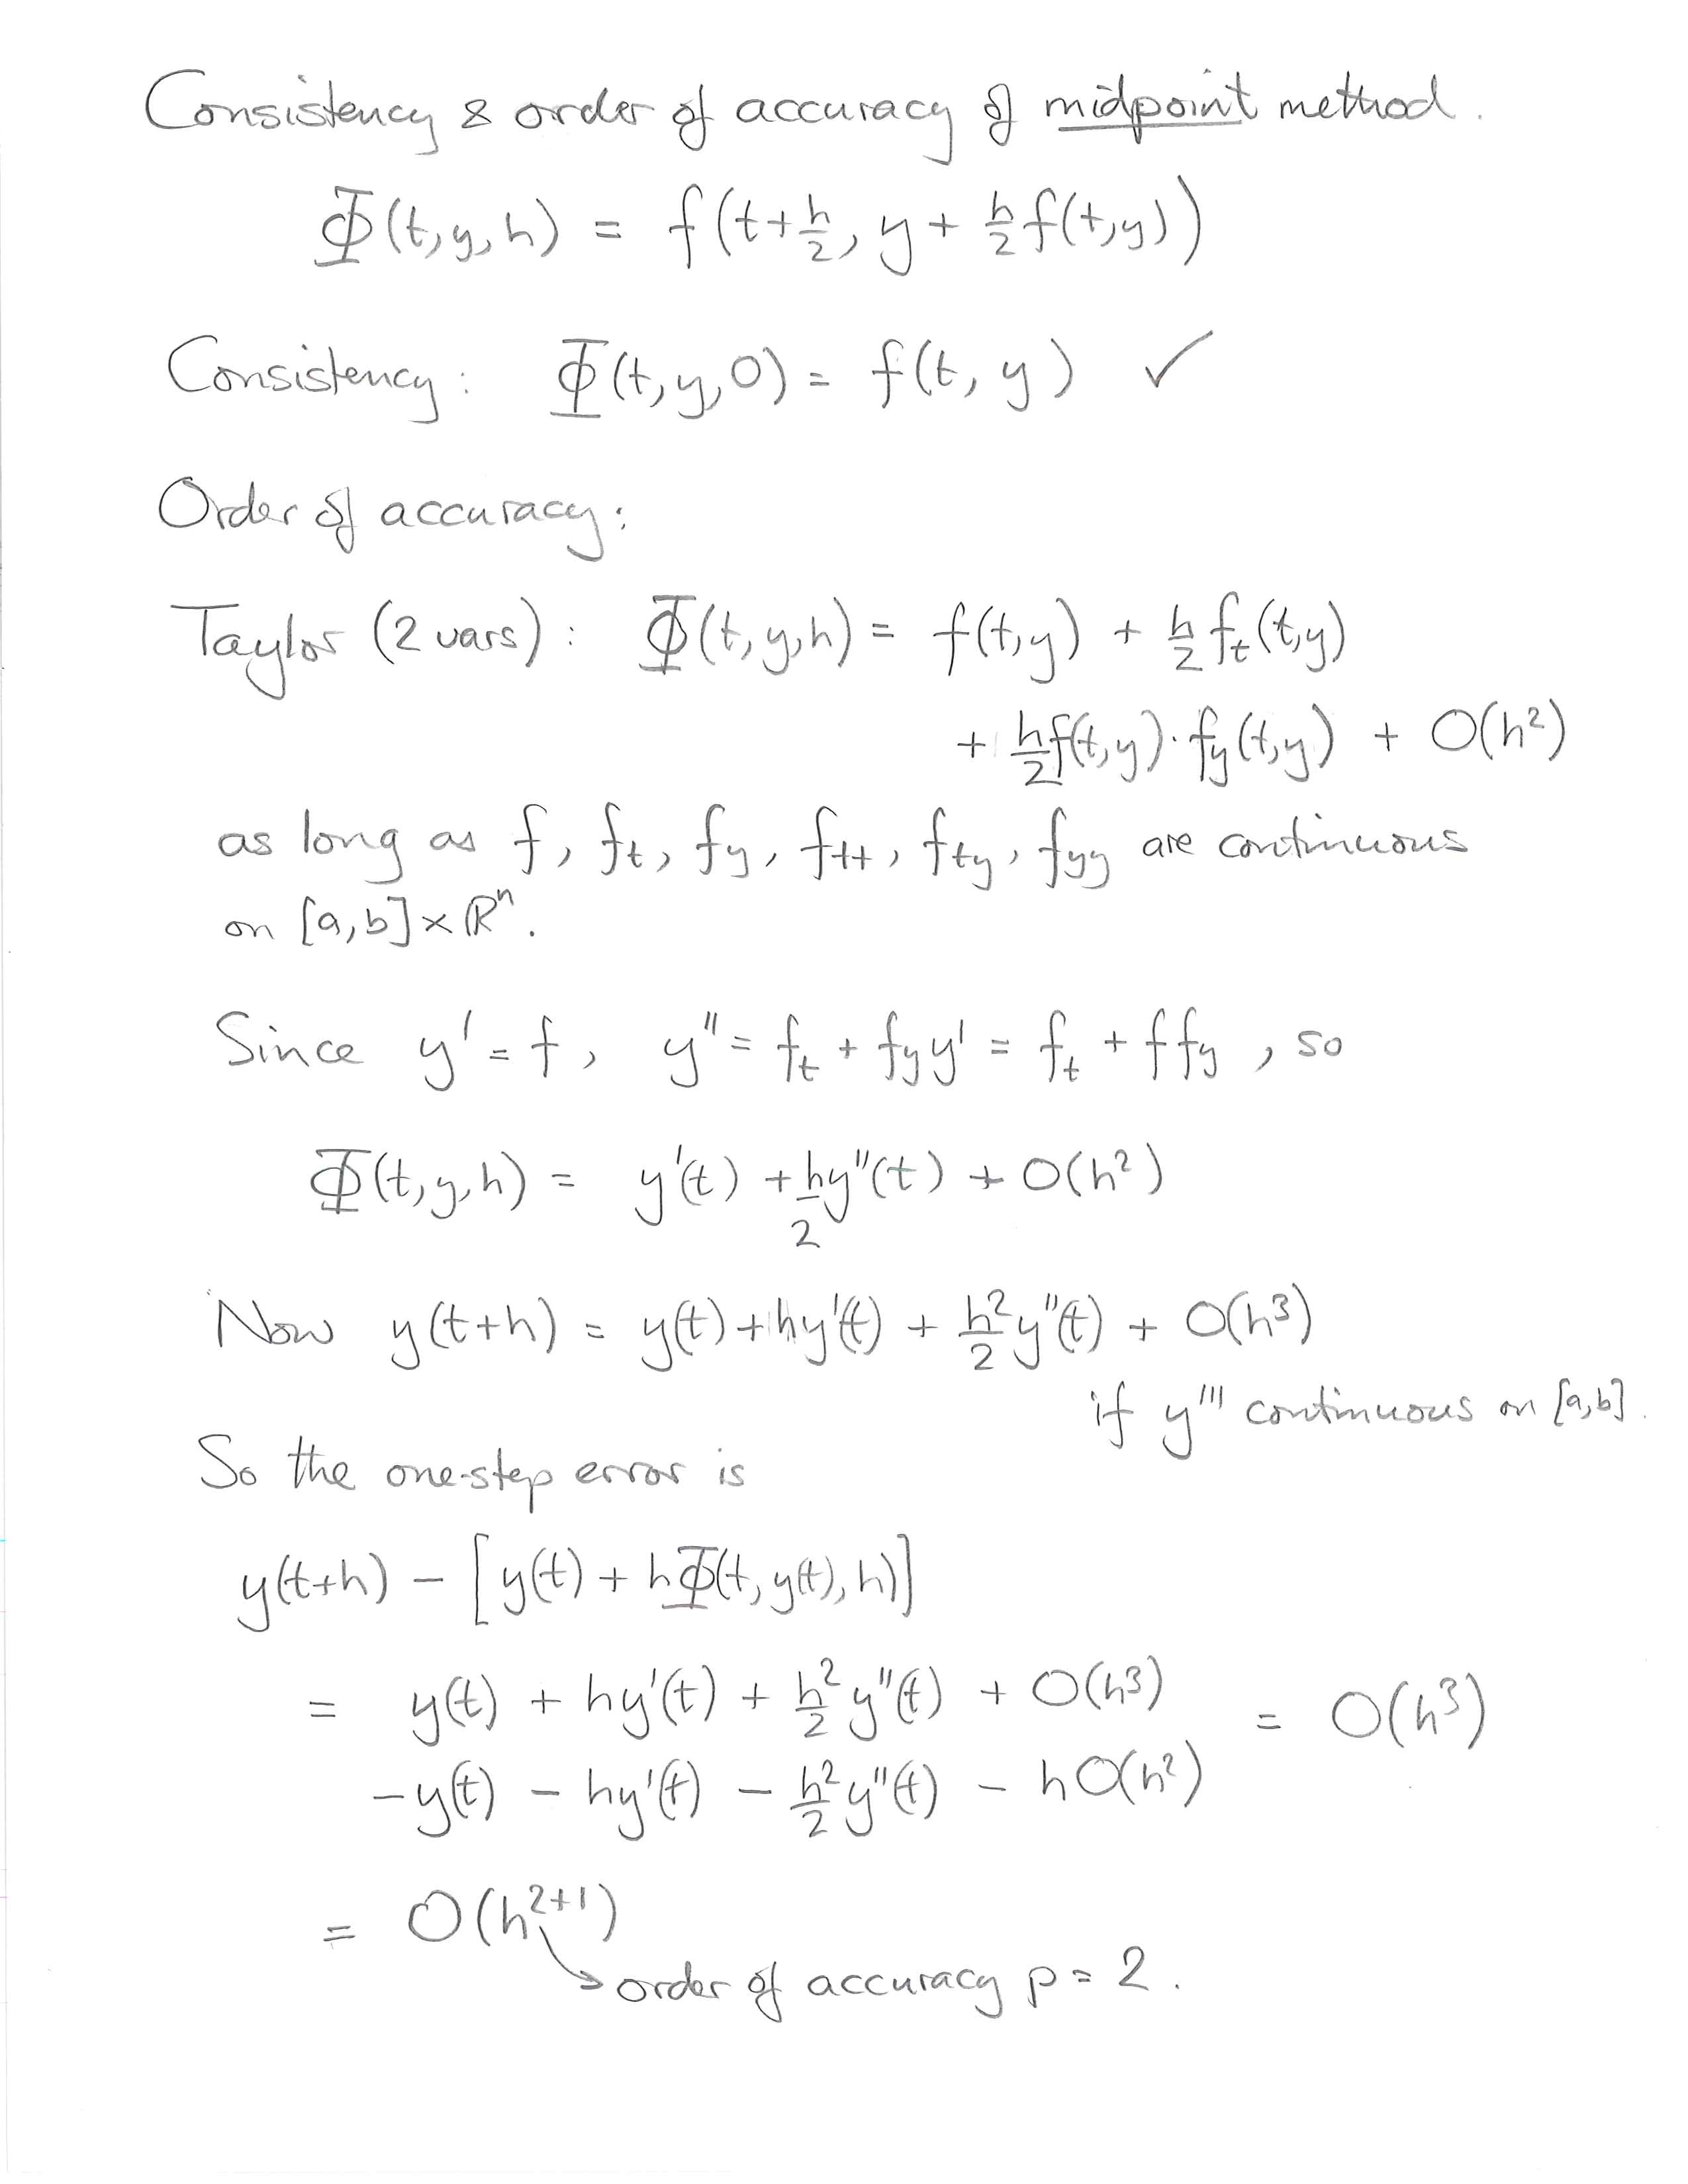 Consistency & order of accuracy of midpoint method.
Φ(t,y,h) = f(t+h/2, y + h/2 f(t,y))
Consistency: Φ(t,y,0) = f(t,y) ✓
Order of accuracy:
Taylor (2 vars): Φ(t,y,h) = f(t,y) + h/2 f_t(t,y)
+ h/2 f(t,y)·f_y(t,y) + O(h²)
as long as f, f_t, f_y, f_tt, f_ty, f_yy are continuous
on [a,b]×ℝⁿ.
Since y' = f, y'' = f_t + f_y y' = f_t + f f_y, so
Φ(t,y,h) = y'(t) + h/2 y''(t) + O(h²)
Now y(t+h) = y(t) + hy'(t) + h²/2 y''(t) + O(h³)
if y''' continuous on [a,b].
So the one-step error is
y(t+h) − [y(t) + hΦ(t,y(t),h)]
= y(t) + hy'(t) + h²/2 y''(t) + O(h³) = O(h³)
−y(t) − hy'(t) − h²/2 y''(t) − hO(h²)
= O(h²⁺¹)
↘ order of accuracy p = 2.